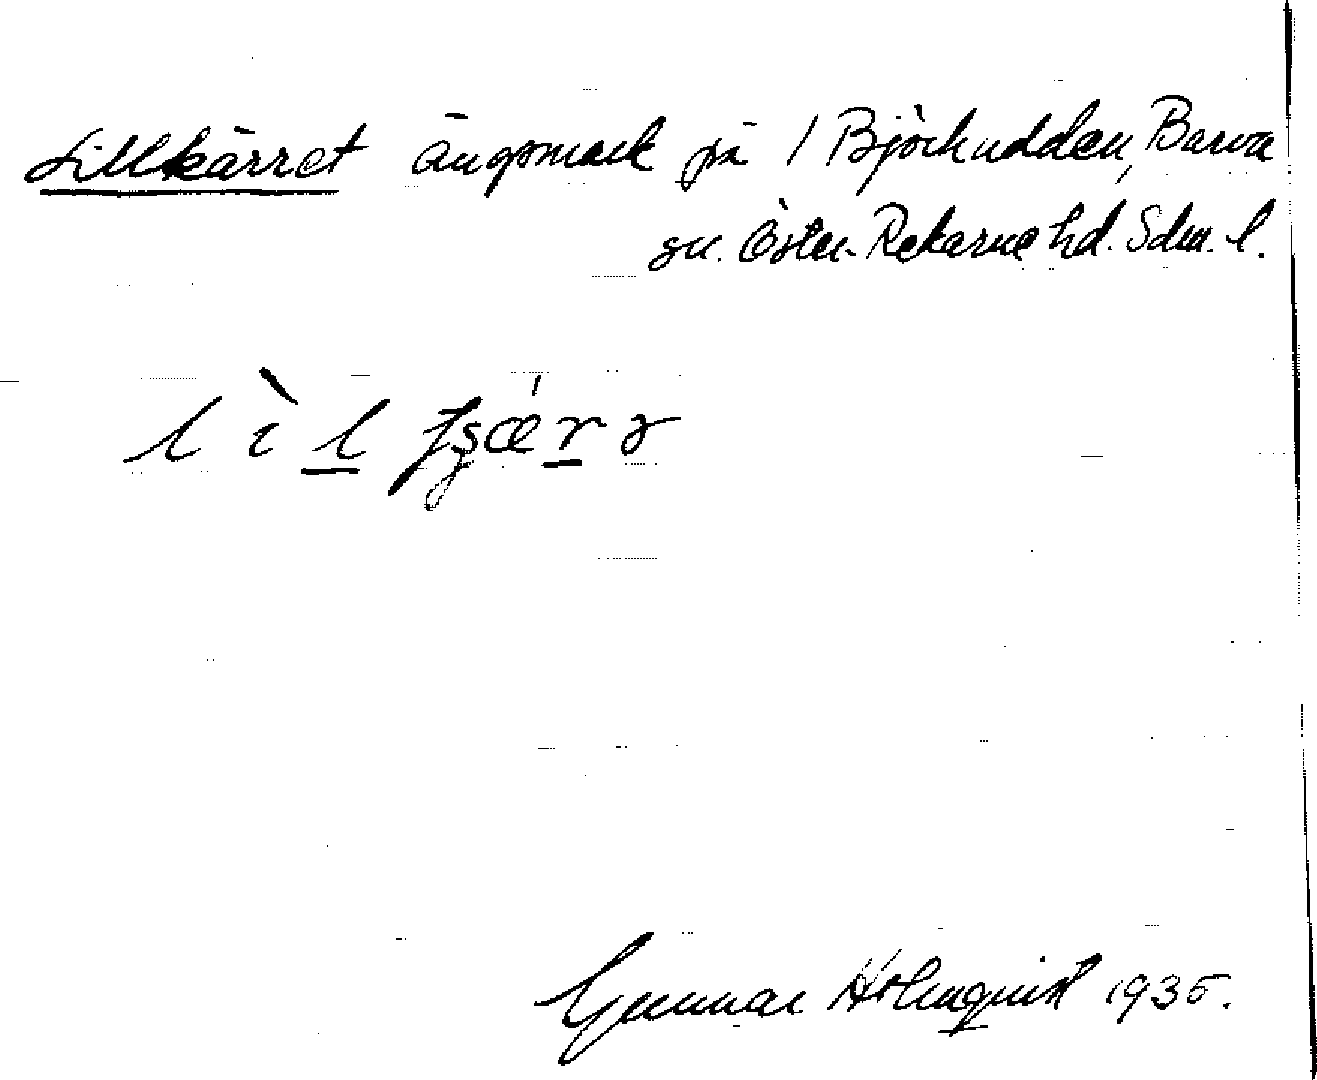 Lillkärret ängsmark på 1 Björkudden, Barva
sn. Öster-Rekarne hd. Sdm. l.
Gunnar Holmquist 1935.